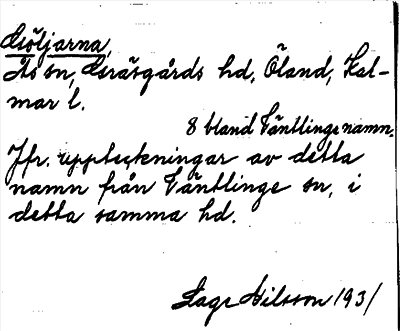 Göljorna,
Ås sn, Gräsgårds hd, Öland, Kal-
mar l.
8 bland Ventlinge namn.
Jfr. uppteckningar av detta
namn från Ventlinge sn, i
detta samma hd.
Lage Nilsson 1931